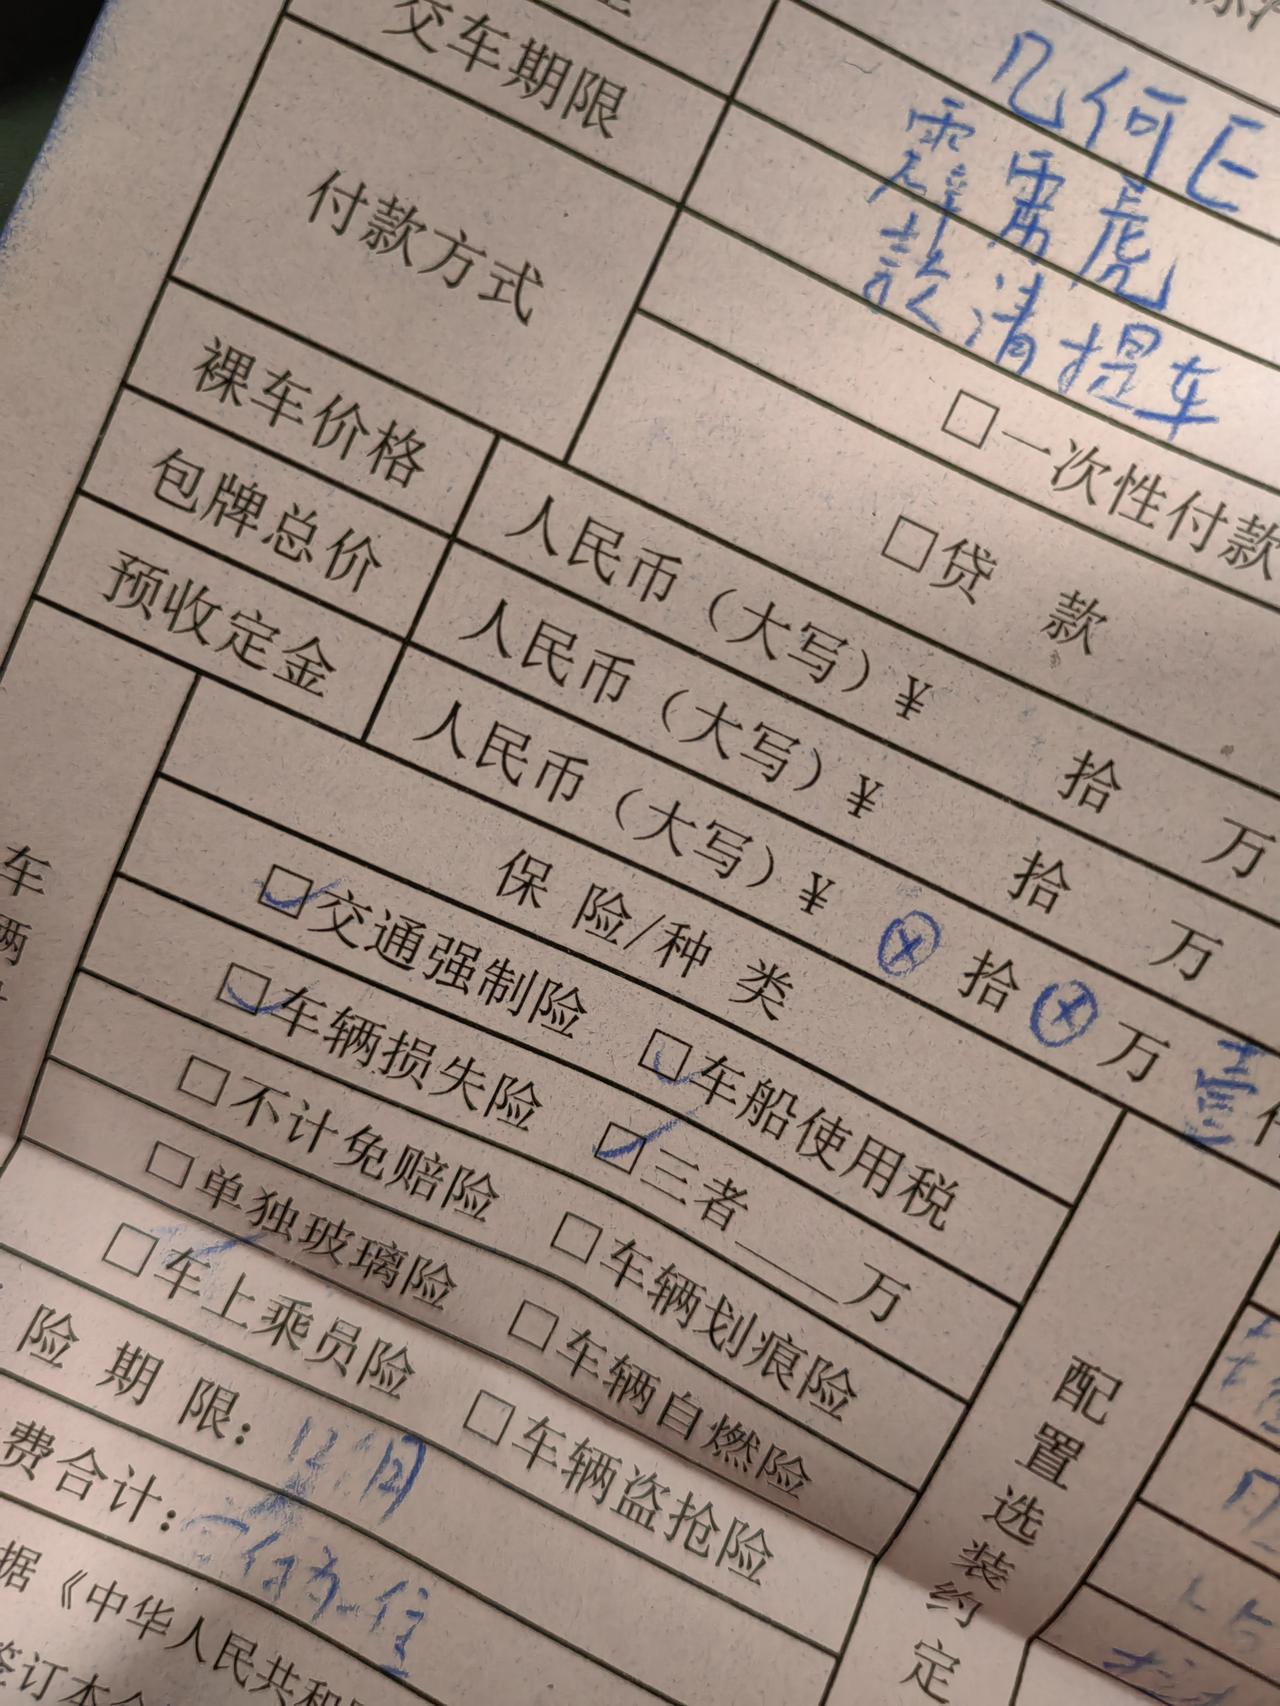 几何E
霹雳虎
交车期限 款清提车
付款方式
□一次性付款
□贷 款
裸车价格 人民币（大写）¥ 拾 万
包牌总价 人民币（大写）¥ 拾 万
预收定金 人民币（大写）¥ ⊗ 拾 ⊗ 万 壹
保 险/种 类
☑交通强制险 ☑车船使用税
☑车辆损失险 ☑三者____万
□不计免赔险 □车辆划痕险
□单独玻璃险 □车辆自燃险
□车上乘员险 □车辆盗抢险
险 期 限：
费合计：
据《中华人民共和
签订本合
车
辆
配
置
选
装
约
定